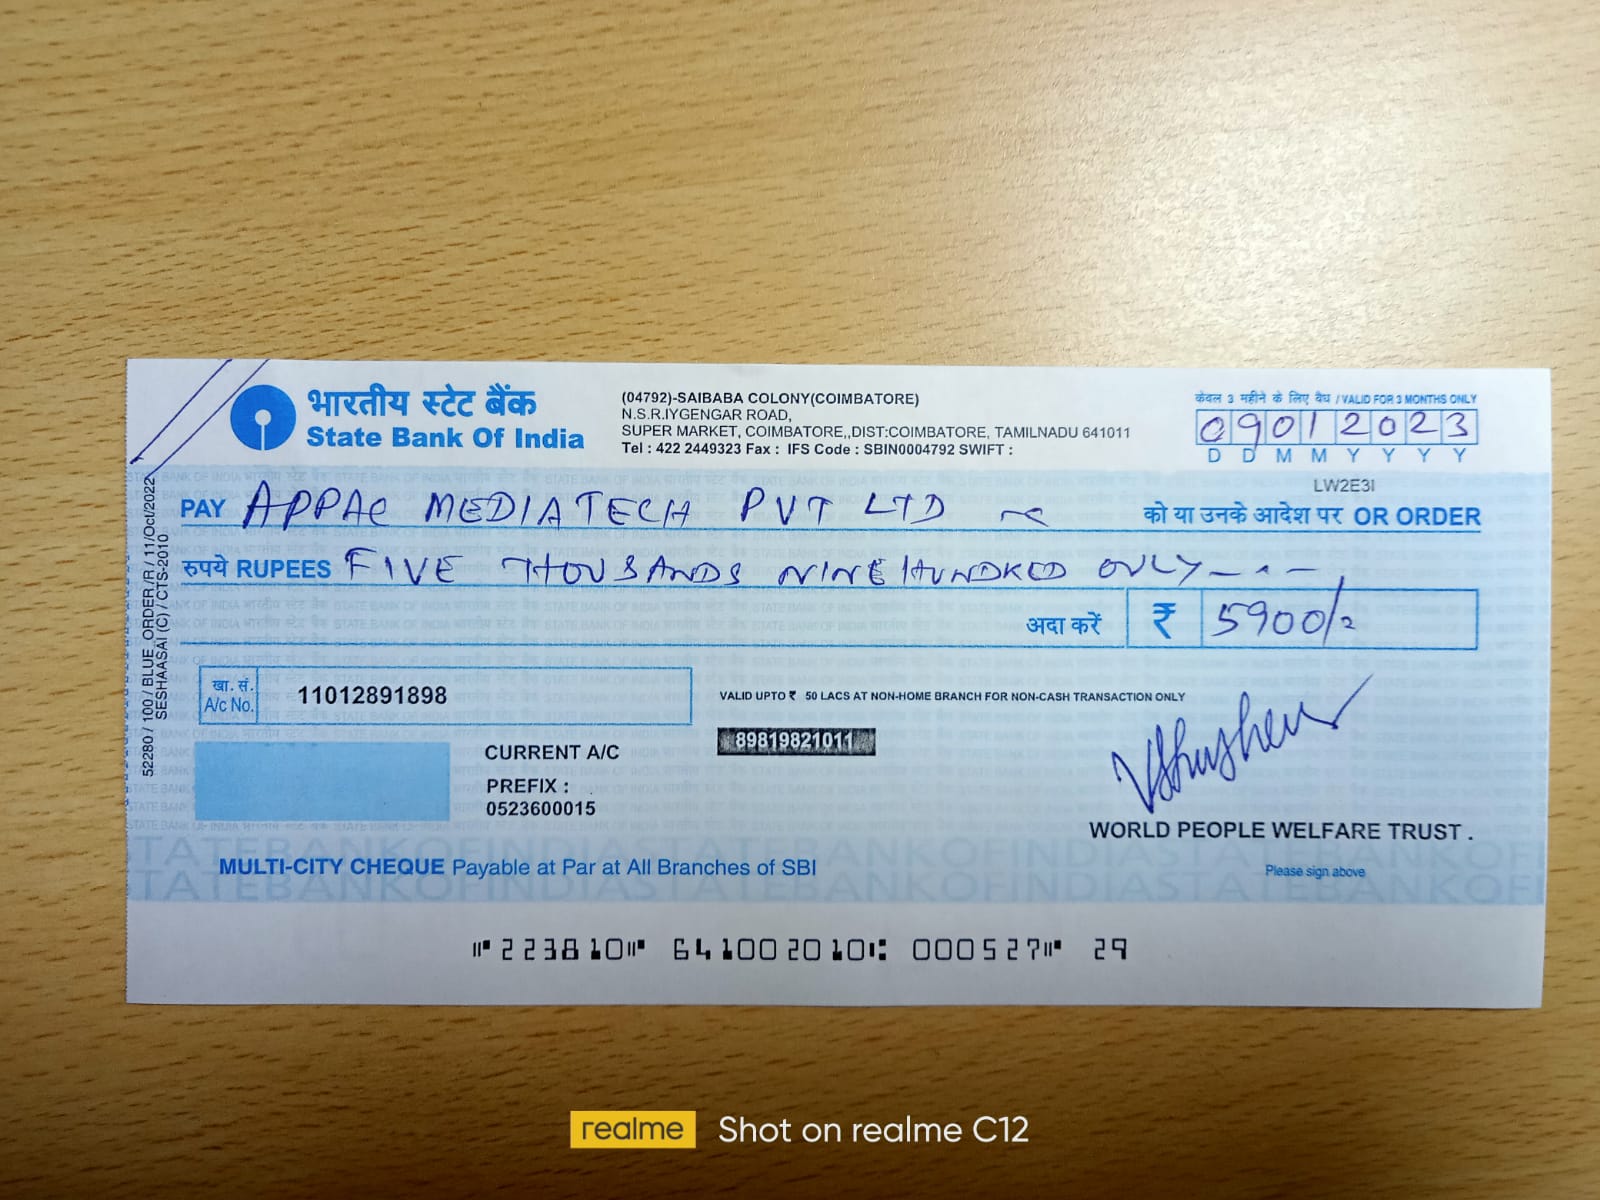 भारतीय स्टेट बैंक
State Bank Of India
(04792)-SAIBABA COLONY(COIMBATORE)
N.S.R.IYGENGAR ROAD,
SUPER MARKET, COIMBATORE,,DIST:COIMBATORE, TAMILNADU 641011
Tel : 422 2449323 Fax : IFS Code : SBIN0004792 SWIFT :
केवल 3 महीने के लिए वैध / VALID FOR 3 MONTHS ONLY
09012023
D D M M Y Y Y Y
LW2E3I
PAY APPAC MEDIATECH PVT LTD को या उनके आदेश पर OR ORDER
रुपये RUPEES FIVE THOUSANDS NINE HUNDRED ONLY
अदा करें ₹ 5900/-
खा. सं.
A/c No. 11012891898
VALID UPTO ₹ 50 LACS AT NON-HOME BRANCH FOR NON-CASH TRANSACTION ONLY
89819821011
CURRENT A/C
PREFIX :
0523600015
WORLD PEOPLE WELFARE TRUST .
Please sign above
MULTI-CITY CHEQUE Payable at Par at All Branches of SBI
STATEBANKOFINDIASTATEBANKOFINDIASTATEBANKOF
⑈223810⑈ 641002010⑆ 000527⑈ 29
52280 / 100 / BLUE_ORDER / R / 11/Oct/2022
SESHAASAI (C) / CTS-2010
realme Shot on realme C12